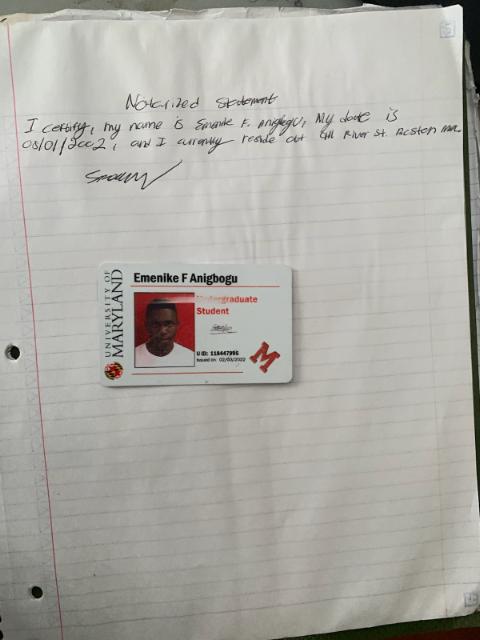 Notarized Statement
I certify, my name is Emenike F. Anigbogu, My date is
05/01/2002, and I currently reside at Gill River St. Boston MA.
UNIVERSITY OF
MARYLAND
Emenike F Anigbogu
Undergraduate
Student
U ID: 118447991
Issued on 02/03/2022
M